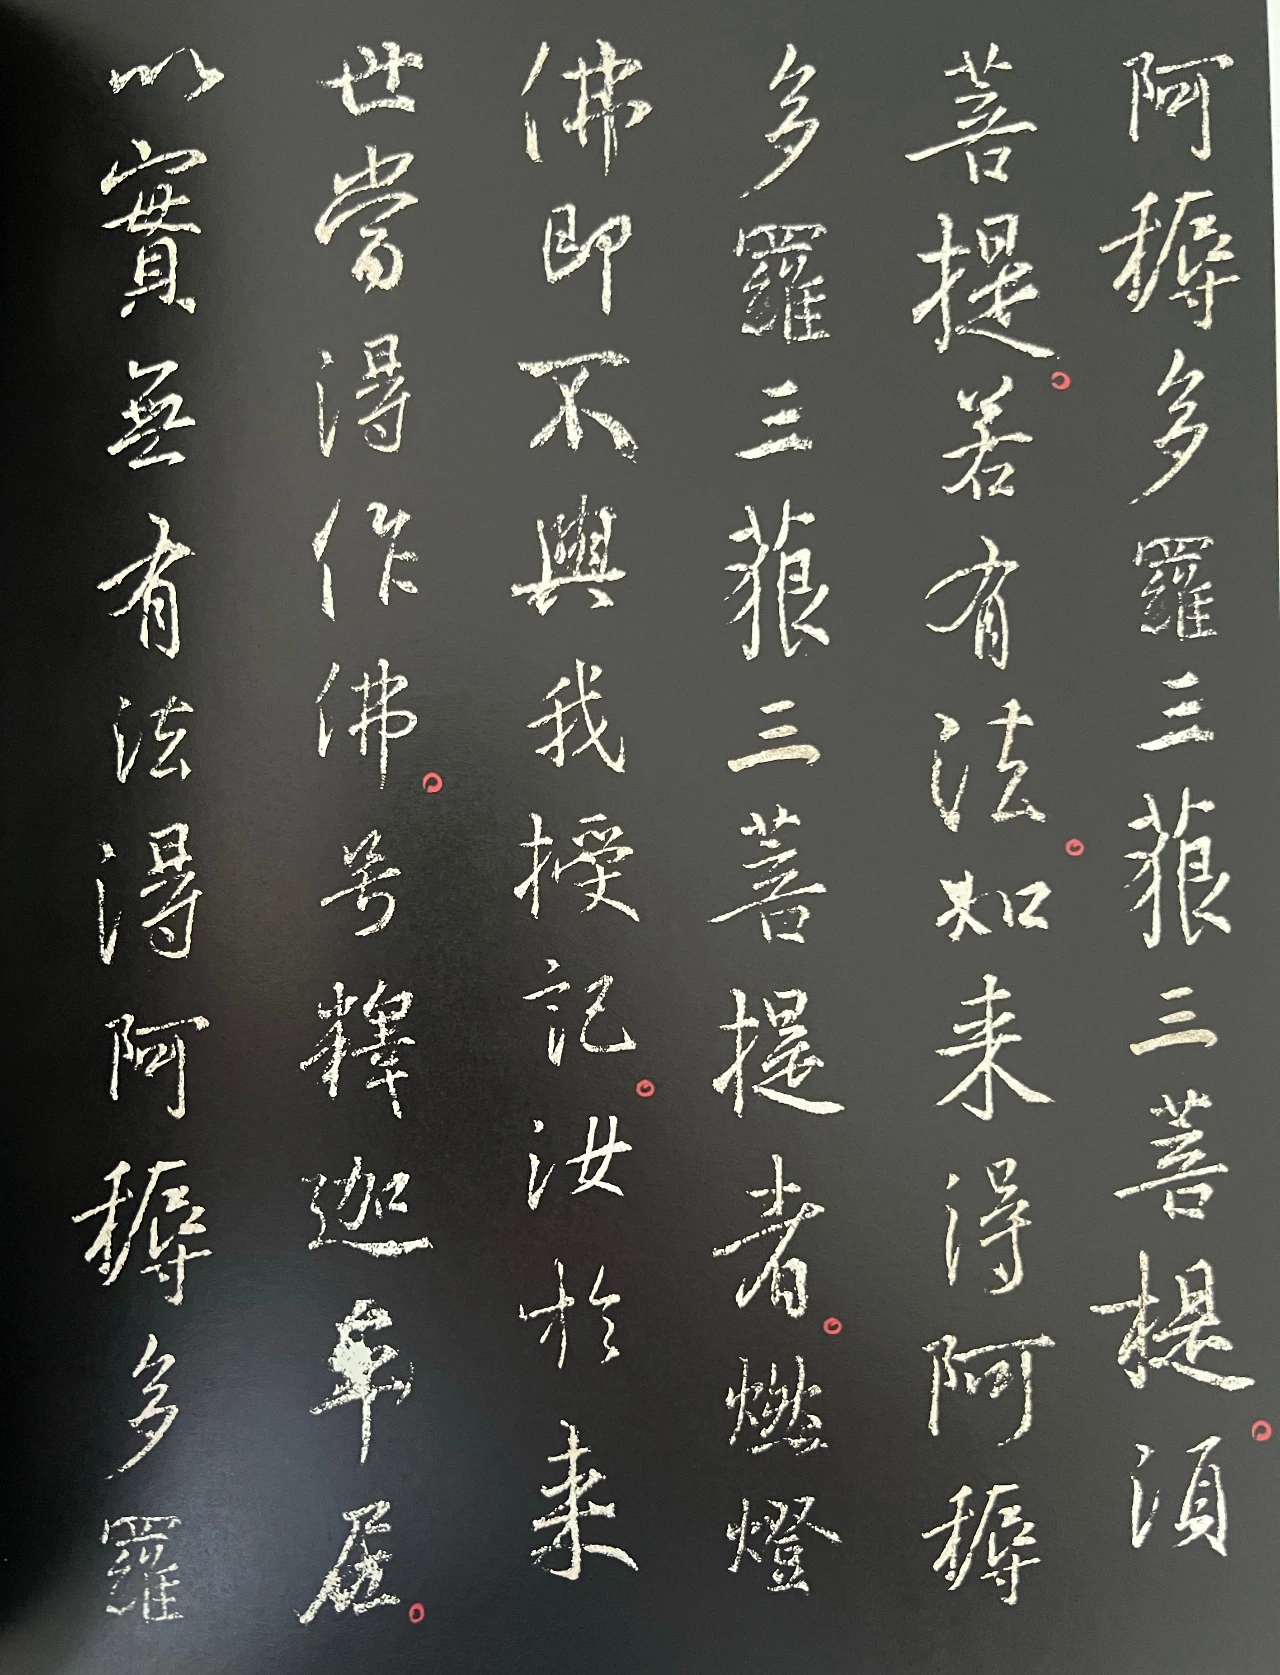 阿耨多羅三藐三菩提。須
菩提。若有法。如来得阿耨
多羅三藐三菩提者。燃燈
佛即不與我授記。汝於来
世當得作佛。号釋迦牟尼。
以實無有法得阿耨多羅